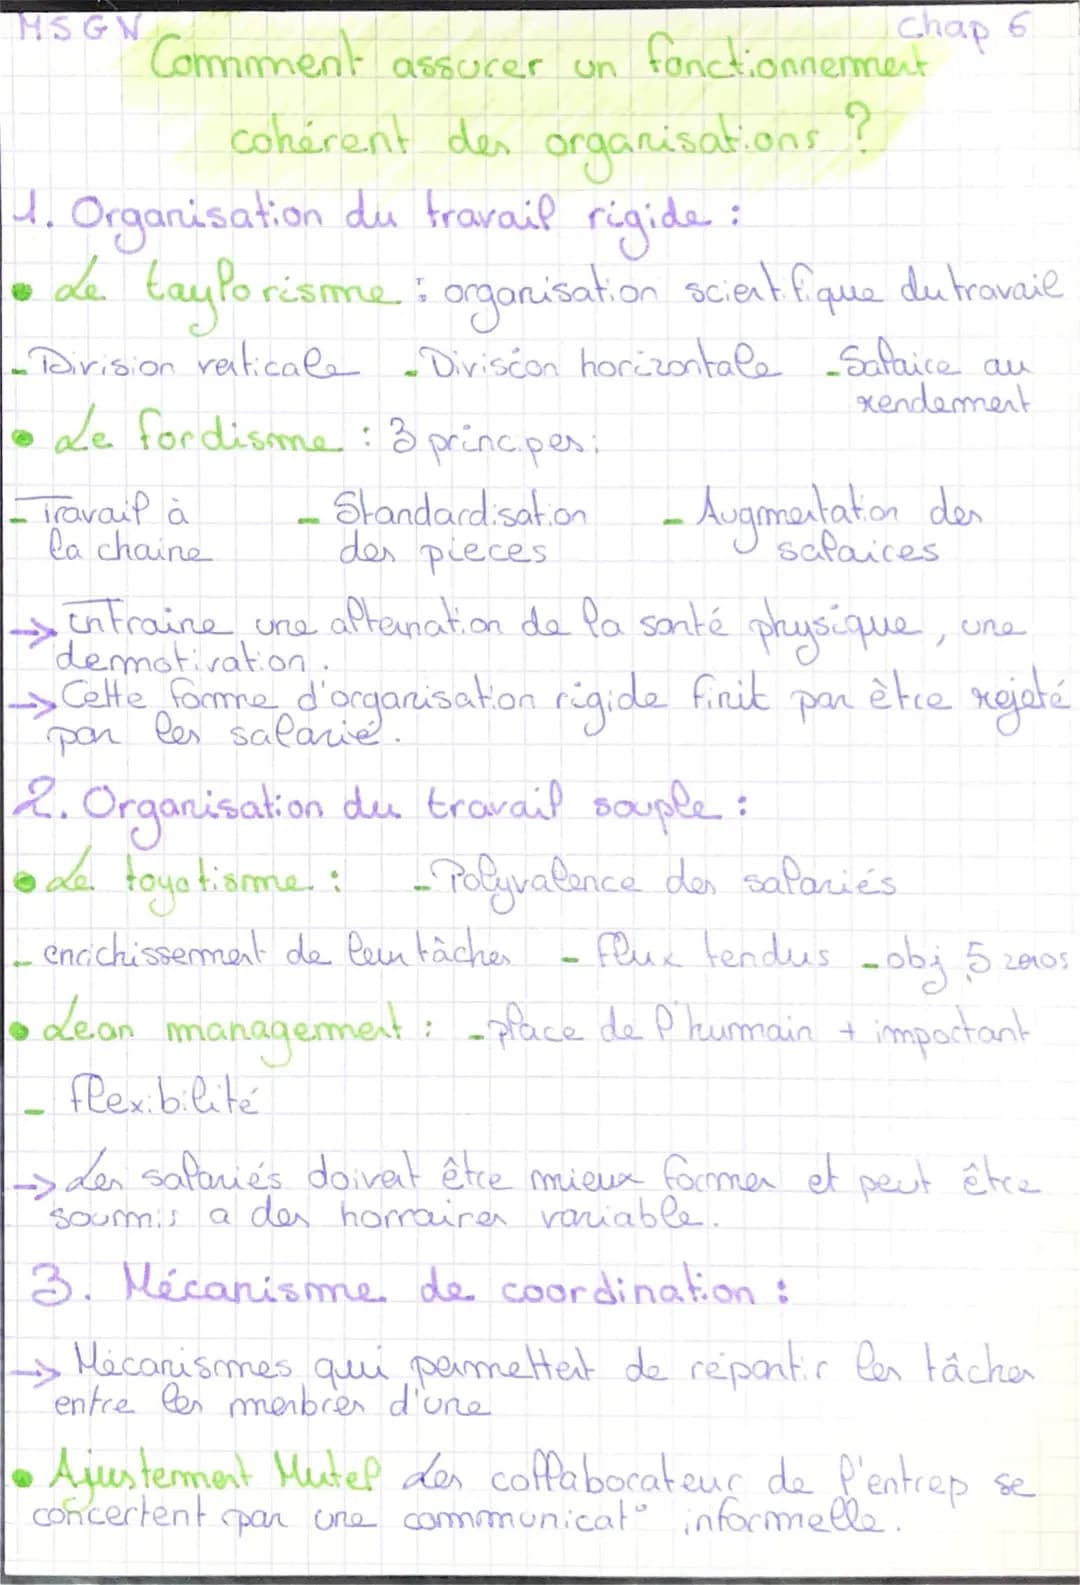 MSGN Chap 6
Comment assurer un fonctionnement
cohérent des organisations ?
1. Organisation du travail rigide :
• Le taylorisme : organisation scientifique du travail
- Division verticale - Division horizontale - Salaire au
rendement
• Le fordisme : 3 principes :
- Travail à - Standardisation - Augmentation des
la chaine des pieces salaires
-> Entraine une alternation de la santé physique, une
demotivation.
-> Cette forme d'organisation rigide finit par être rejeté
par les salarié.
2. Organisation du travail souple :
• Le toyotisme : - Polyvalence des salariés
- enrichissement de leur tâches - flux tendus - obj 5 zeros
• Lean management : - place de l'humain + important
- flexibilité
-> Les salariés doivent être mieux former et peut être
soumis a des horraires variable.
3. Mécanisme de coordination :
-> Mécanismes qui permettent de répartir les tâches
entre les menbres d'une
• Ajustement Mutel Les collaborateur de l'entrep se
concertent par une communicat° informelle.